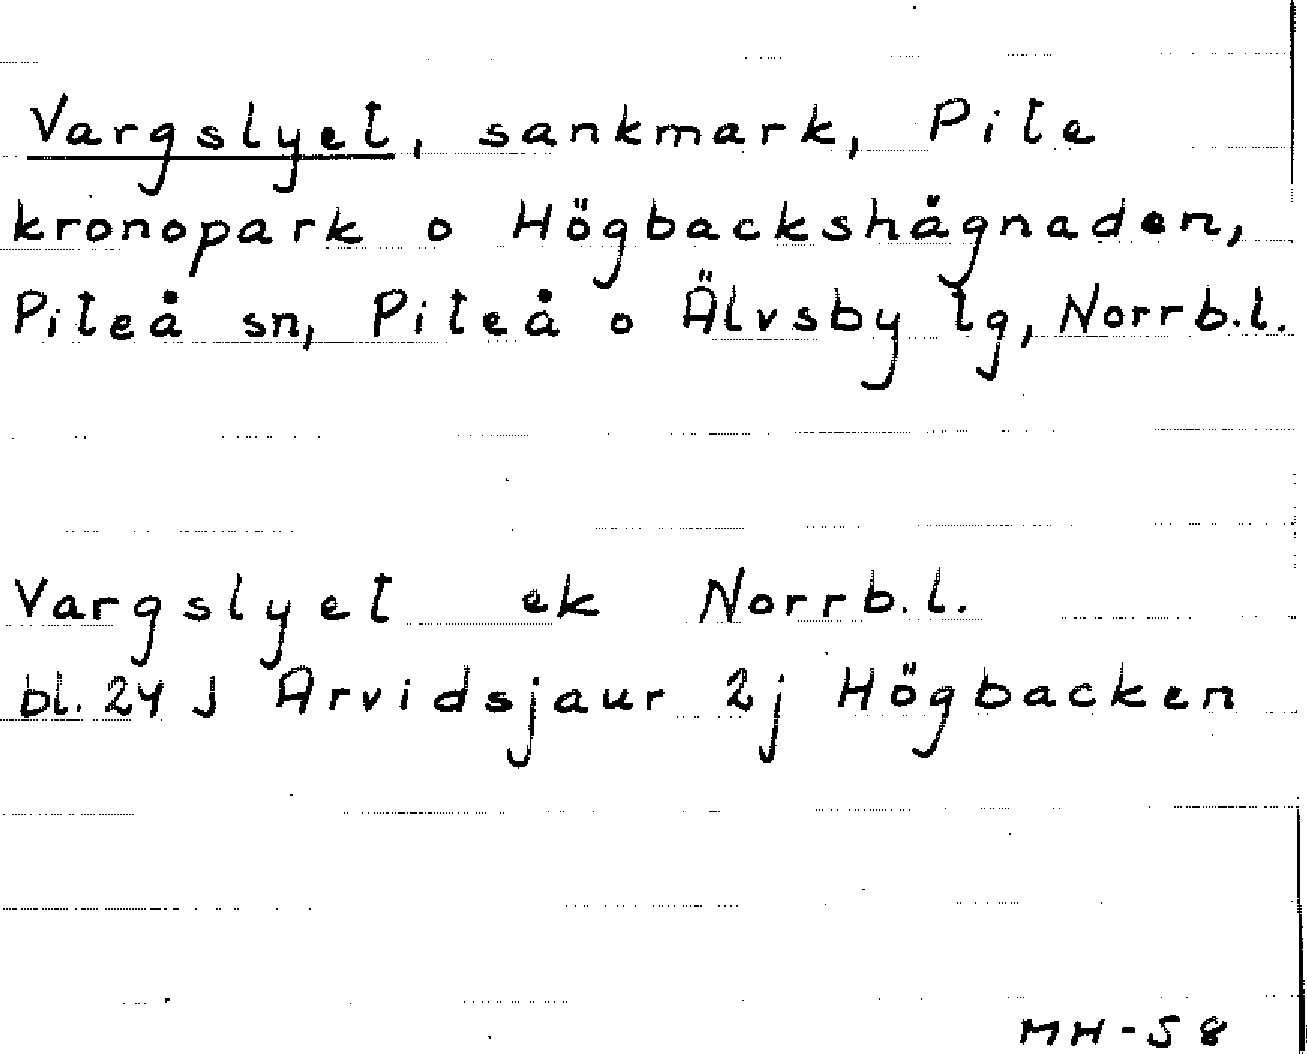 Vargslyet, sankmark, Pite
kronopark o Högbackshägnaden,
Piteå sn, Piteå o Älvsby tg, Norrb.l.
Vargslyet ek Norrb.l.
bl. 24 J Arvidsjaur 2j Högbacken
MH-58